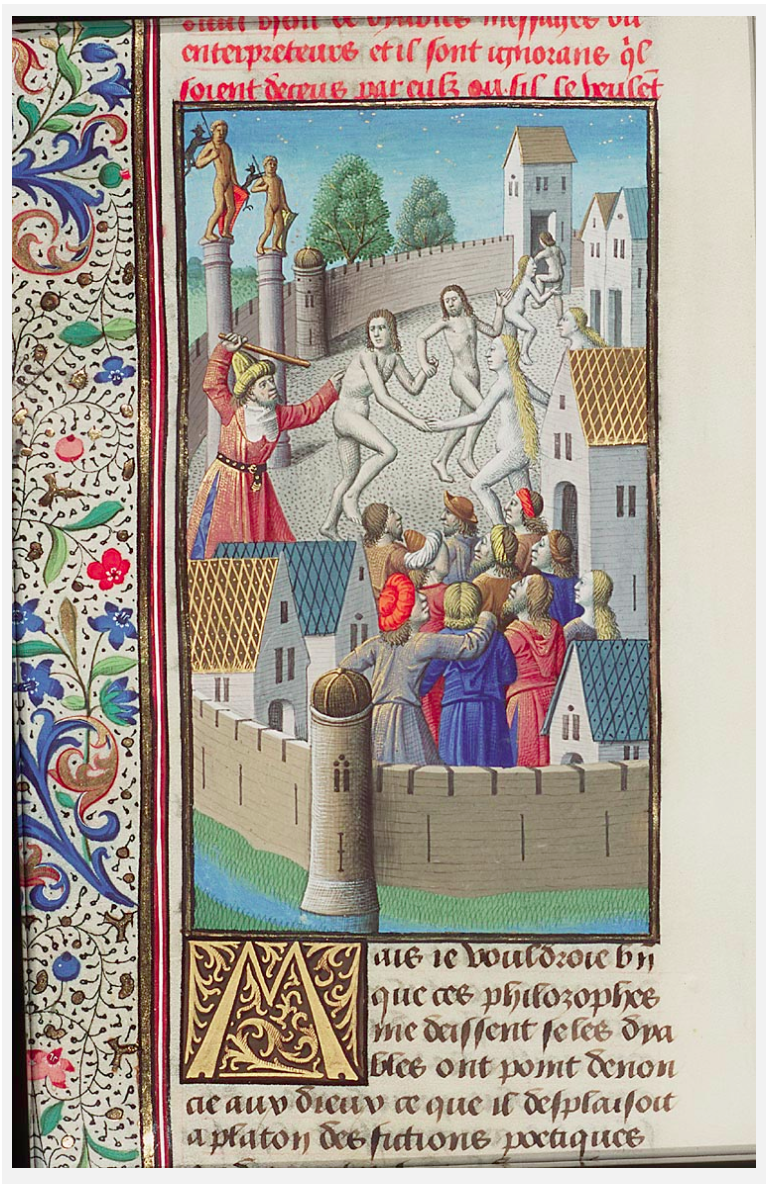 enterpreteurs et il sont ignorans q̃l
soient deceus par eulx ou sil le veulẽt
Mais ie vouldroie bñ
que ces philozophes
me deissent se les dya
bles ont point denon
cie aux dieux ce que il desplaisoit
a platon des fictions poetiques